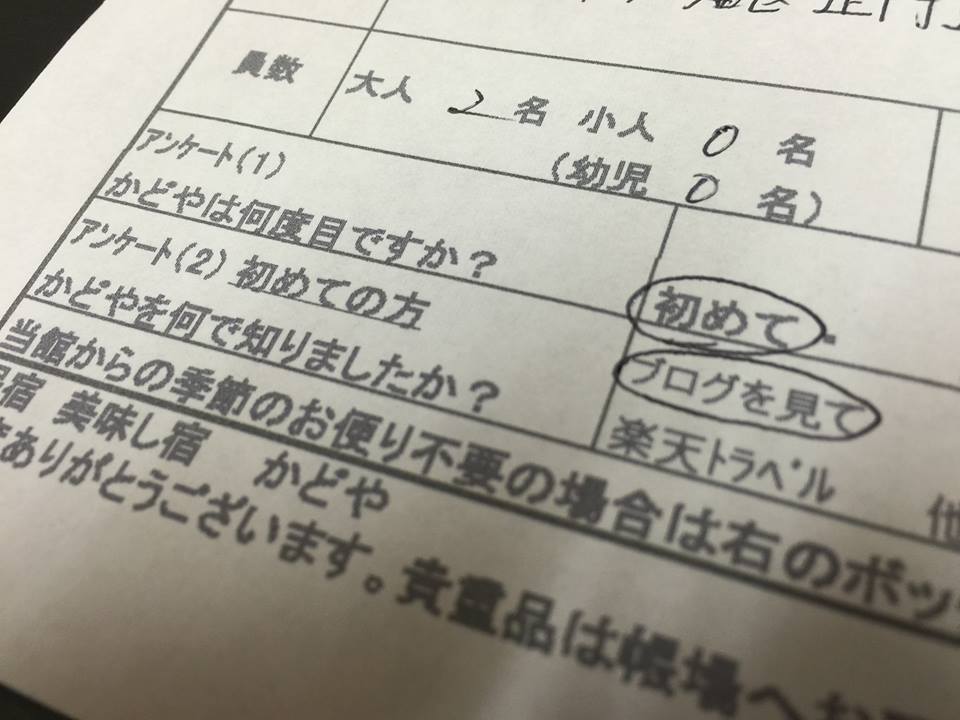 員数 大人 2名 小人 0 名
(幼児 0 名)
アンケート(1)
かどやは何度目ですか?
初めて.
アンケート(2) 初めての方
かどやを何で知りましたか?
ブログを見て
楽天トラベル 他
当館からの季節のお便り不要の場合は右のボッ
宿 美味し宿 かどや
ありがとうございます。貴重品は帳場へお